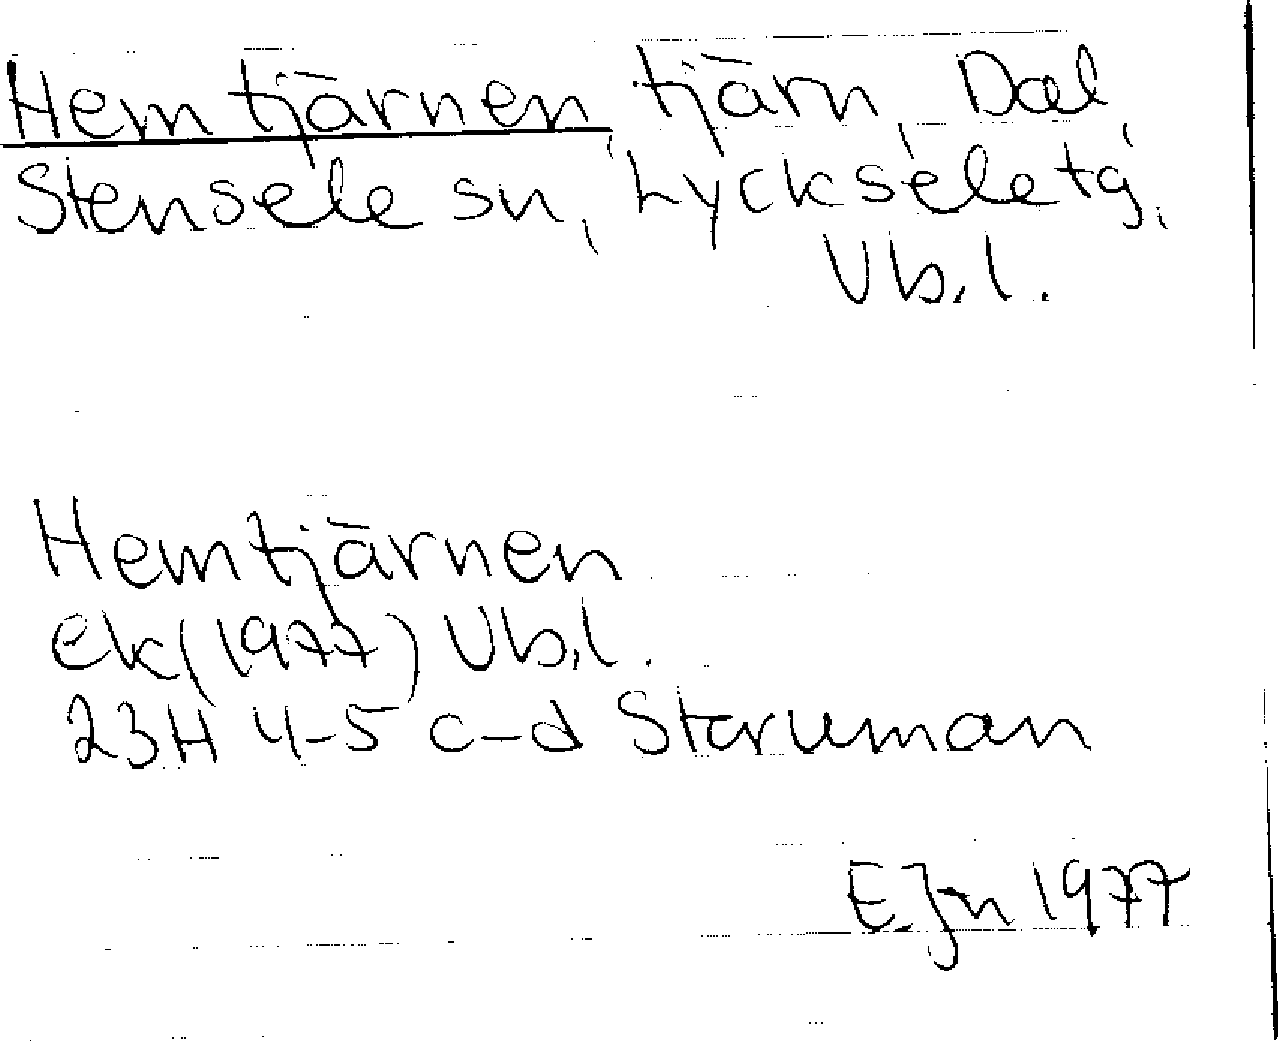 Hemtjärnen, tjärn, Dal,
Stensele sn, Lycksele tg,
Vb.l.
Hemtjärnen
ek (1977) Vb.l.
23H 4-5 c-d Storuman
E.Jn 1977